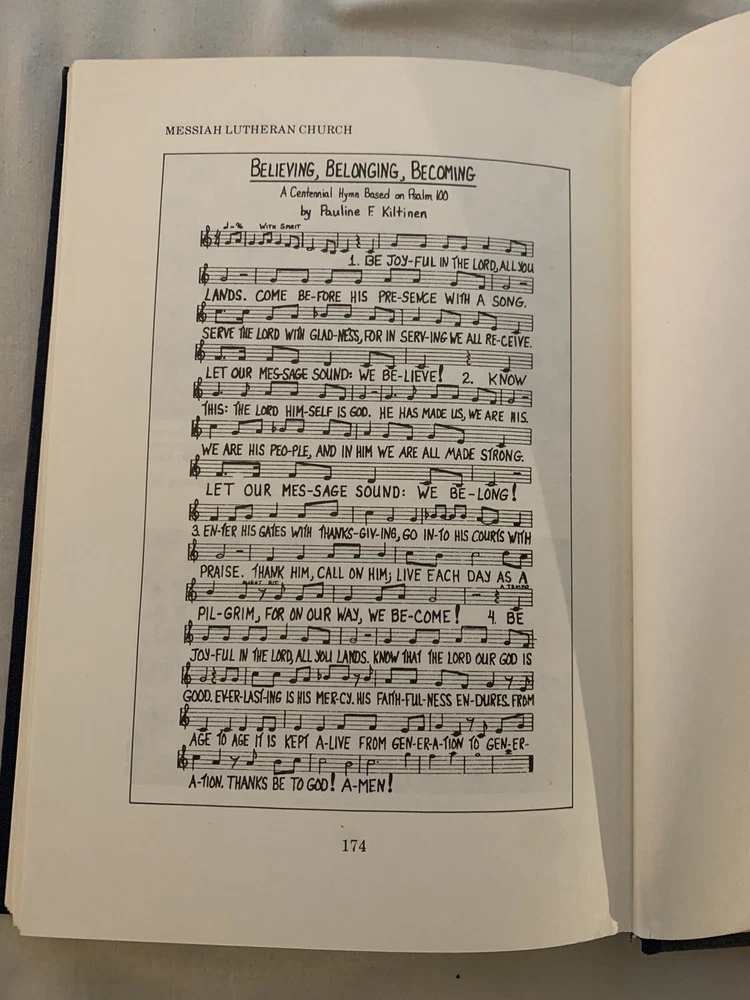 MESSIAH LUTHERAN CHURCH
BELIEVING, BELONGING, BECOMING
A Centennial Hymn Based on Psalm 100
by Pauline F. Kiltinen
WITH SPIRIT
1. BE JOY-FUL IN THE LORD, ALL YOU
LANDS. COME BE-FORE HIS PRE-SENCE WITH A SONG.
SERVE THE LORD WITH GLAD-NESS, FOR IN SERV-ING WE ALL RE-CEIVE.
LET OUR MES-SAGE SOUND: WE BE-LIEVE! 2. KNOW
THIS: THE LORD HIM-SELF IS GOD. HE HAS MADE US, WE ARE HIS.
WE ARE HIS PEO-PLE, AND IN HIM WE ARE ALL MADE STRONG.
LET OUR MES-SAGE SOUND: WE BE-LONG!
3. EN-TER HIS GATES WITH THANKS-GIV-ING, GO IN-TO HIS COURTS WITH
PRAISE. THANK HIM, CALL ON HIM; LIVE EACH DAY AS A
A TEMPO
PIL-GRIM, FOR ON OUR WAY, WE BE-COME! 4. BE
JOY-FUL IN THE LORD, ALL YOU LANDS. KNOW THAT THE LORD OUR GOD IS
GOOD. EV-ER-LAST-ING IS HIS MER-CY. HIS FAITH-FUL-NESS EN-DURES. FROM
AGE TO AGE IT IS KEPT A-LIVE FROM GEN-ER-A-TION TO GEN-ER-
A-TION. THANKS BE TO GOD! A-MEN!
174